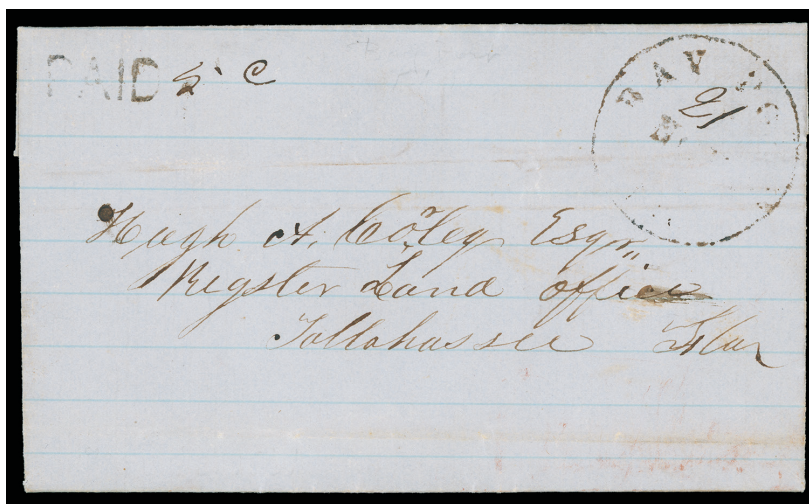 PAID 5 C
BAY
21
Hugh A. Coley Esqr
Register Land Office
Tallahassee Flar